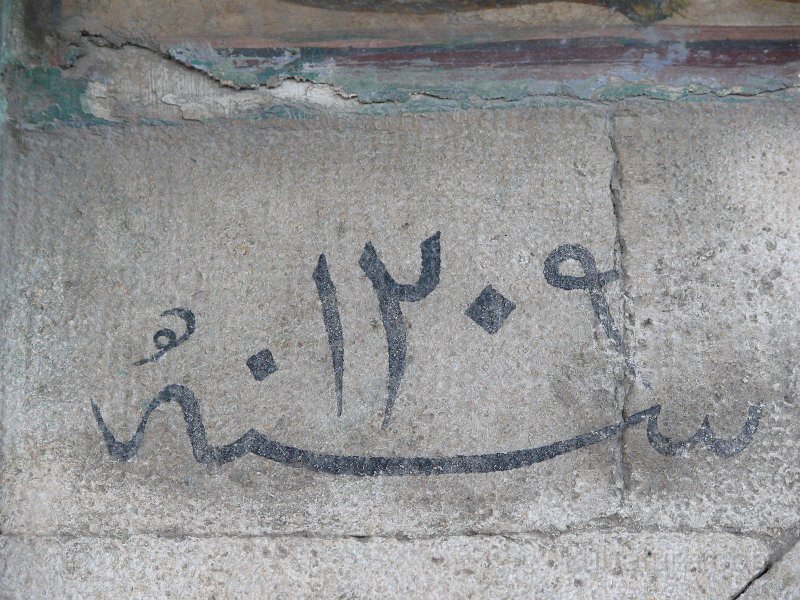 سنة ١٢٠٩